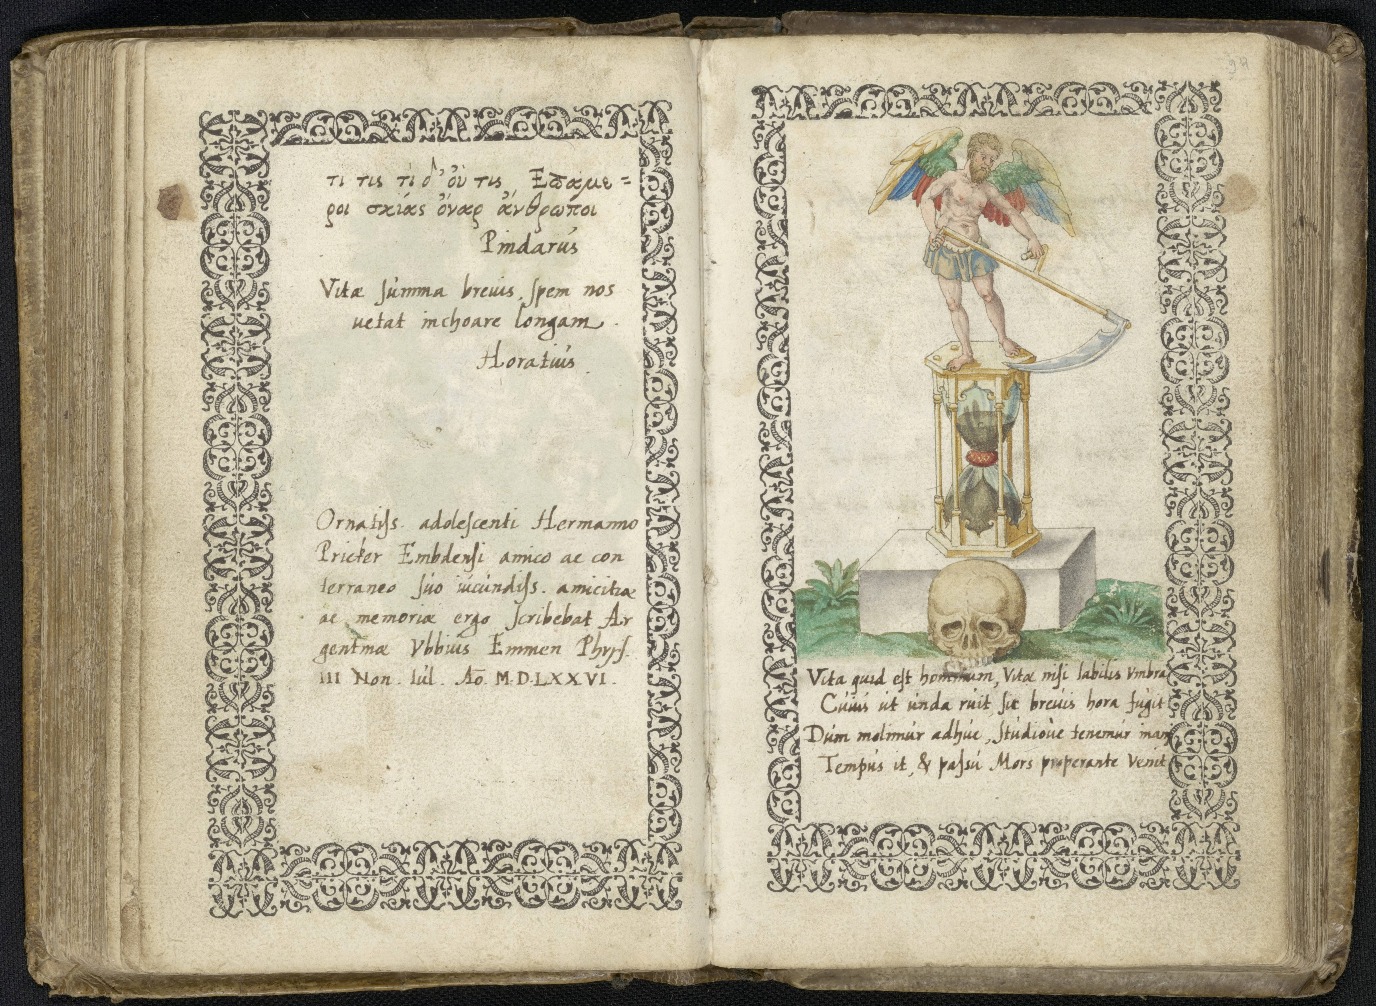 τι τις τι δ' οὐ τις, Επάμε=
ροι σκίας ὄναρ ἄνθρωποι
Pindarus
Vitæ summa breuis spem nos
uetat inchoare longam.
Horatius
Ornatiss. adolescenti Hermanno
Pricker Embdensi amico ac con
terraneo suo iucundiss. amicitiæ
ac memoriæ ergo scribebat Ar
gentinæ Vbbius Emmen Phrys.
III Non. Iul. Ao. M.D.LXXVI.
94
Vita quid est hominum, Vitæ nisi labilis vmbra
Cuius ut unda ruit, sic breuis hora fugit
Dum molimur adhuc, studioue tenemur inani
Tempus it, & passu Mors properante Venit